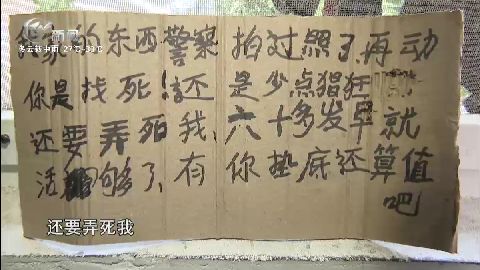 新闻
多云转中雨 27℃-33℃
家的东西警察拍过照了,再动
你是找死!还是少点猖狂
还要弄死我,六十多发早就
活够了,有你垫底还算值
吧
还要弄死我